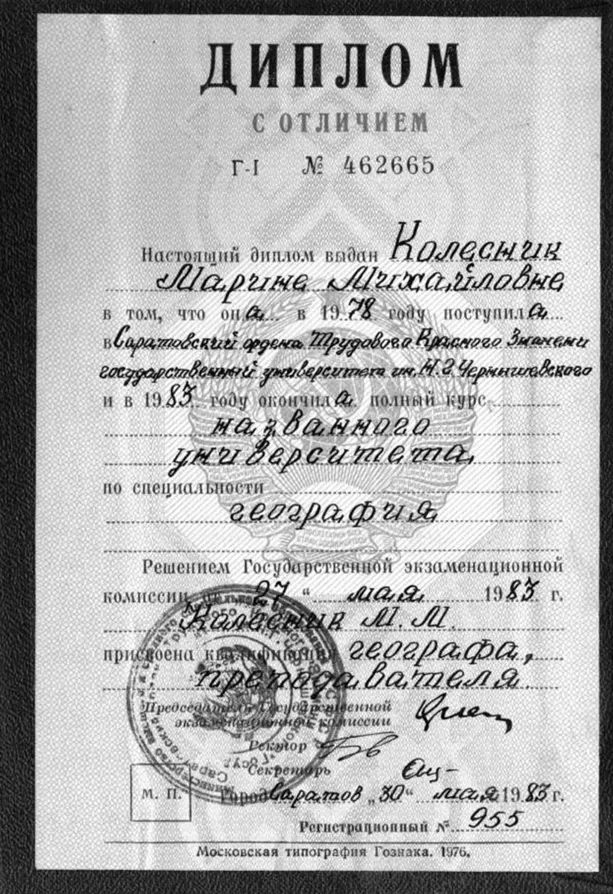 ДИПЛОМ
С ОТЛИЧИЕМ
Г-I № 462665
Настоящий диплом выдан Колесник
Марине Михайловне
в том, что она в 1978 году поступила
в Саратовский ордена Трудового Красного Знамени
государственный университет им. Н.Г. Чернышевского
и в 1983 году окончила полный курс
названного
университета
по специальности
география
Решением Государственной экзаменационной
комиссии от „27“ мая 1983 г.
Колесник М. М.
присвоена квалификация географа,
преподавателя.
Председатель Государственной
экзаменационной комиссии
Ректор
Секретарь
М. П. Город Саратов „30“ мая 1983 г.
Регистрационный № 955
Московская типография Гознака. 1976.